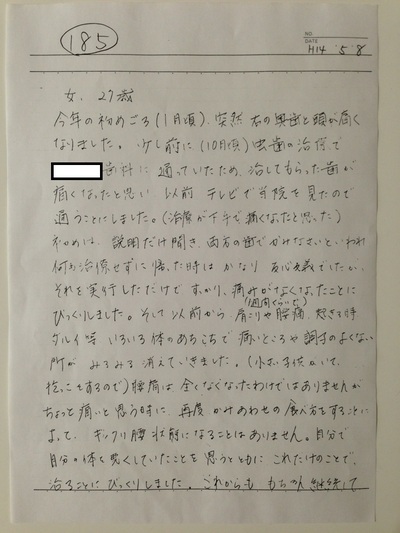 185
NO.
DATE H14・5・8
女. 27歳
今年の初めごろ(1月頃)、突然 右の奥歯と頭が痛く
なりました。少し前に(10月頃)虫歯の治療で
歯科に通っていたため、治してもらった歯が
痛くなったと思い、以前テレビで当院を見たので
通うことにしました。(治療が下手で痛くなったと思った)
初めは、説明だけ聞き、両方の歯でかみなさいといわれ
何も治療せずに帰った時は かなり 半信半疑でしたが、
それを実行しただけで すっかり、痛みがなくなったことに
びっくりしました。(1週間ぐらいで)そして以前から 肩こりや腰痛、起きる時
ダルイ等 いろいろ体のあちこちで 痛いところや調子のよくない
所が みるみる消えていきました。(小さい子供がいて、
抱っこもするので)腰痛は 全くなくなったわけではありませんが
ちょっと痛いと思う時に、再度 かみあわせの食べ方をすることに
よって、ギックリ腰状態になることはありません。自分で
自分の体を悪くしていたことを思うとともに これだけのことで、
治ることにびっくりしました。これからも もちろん 継続して